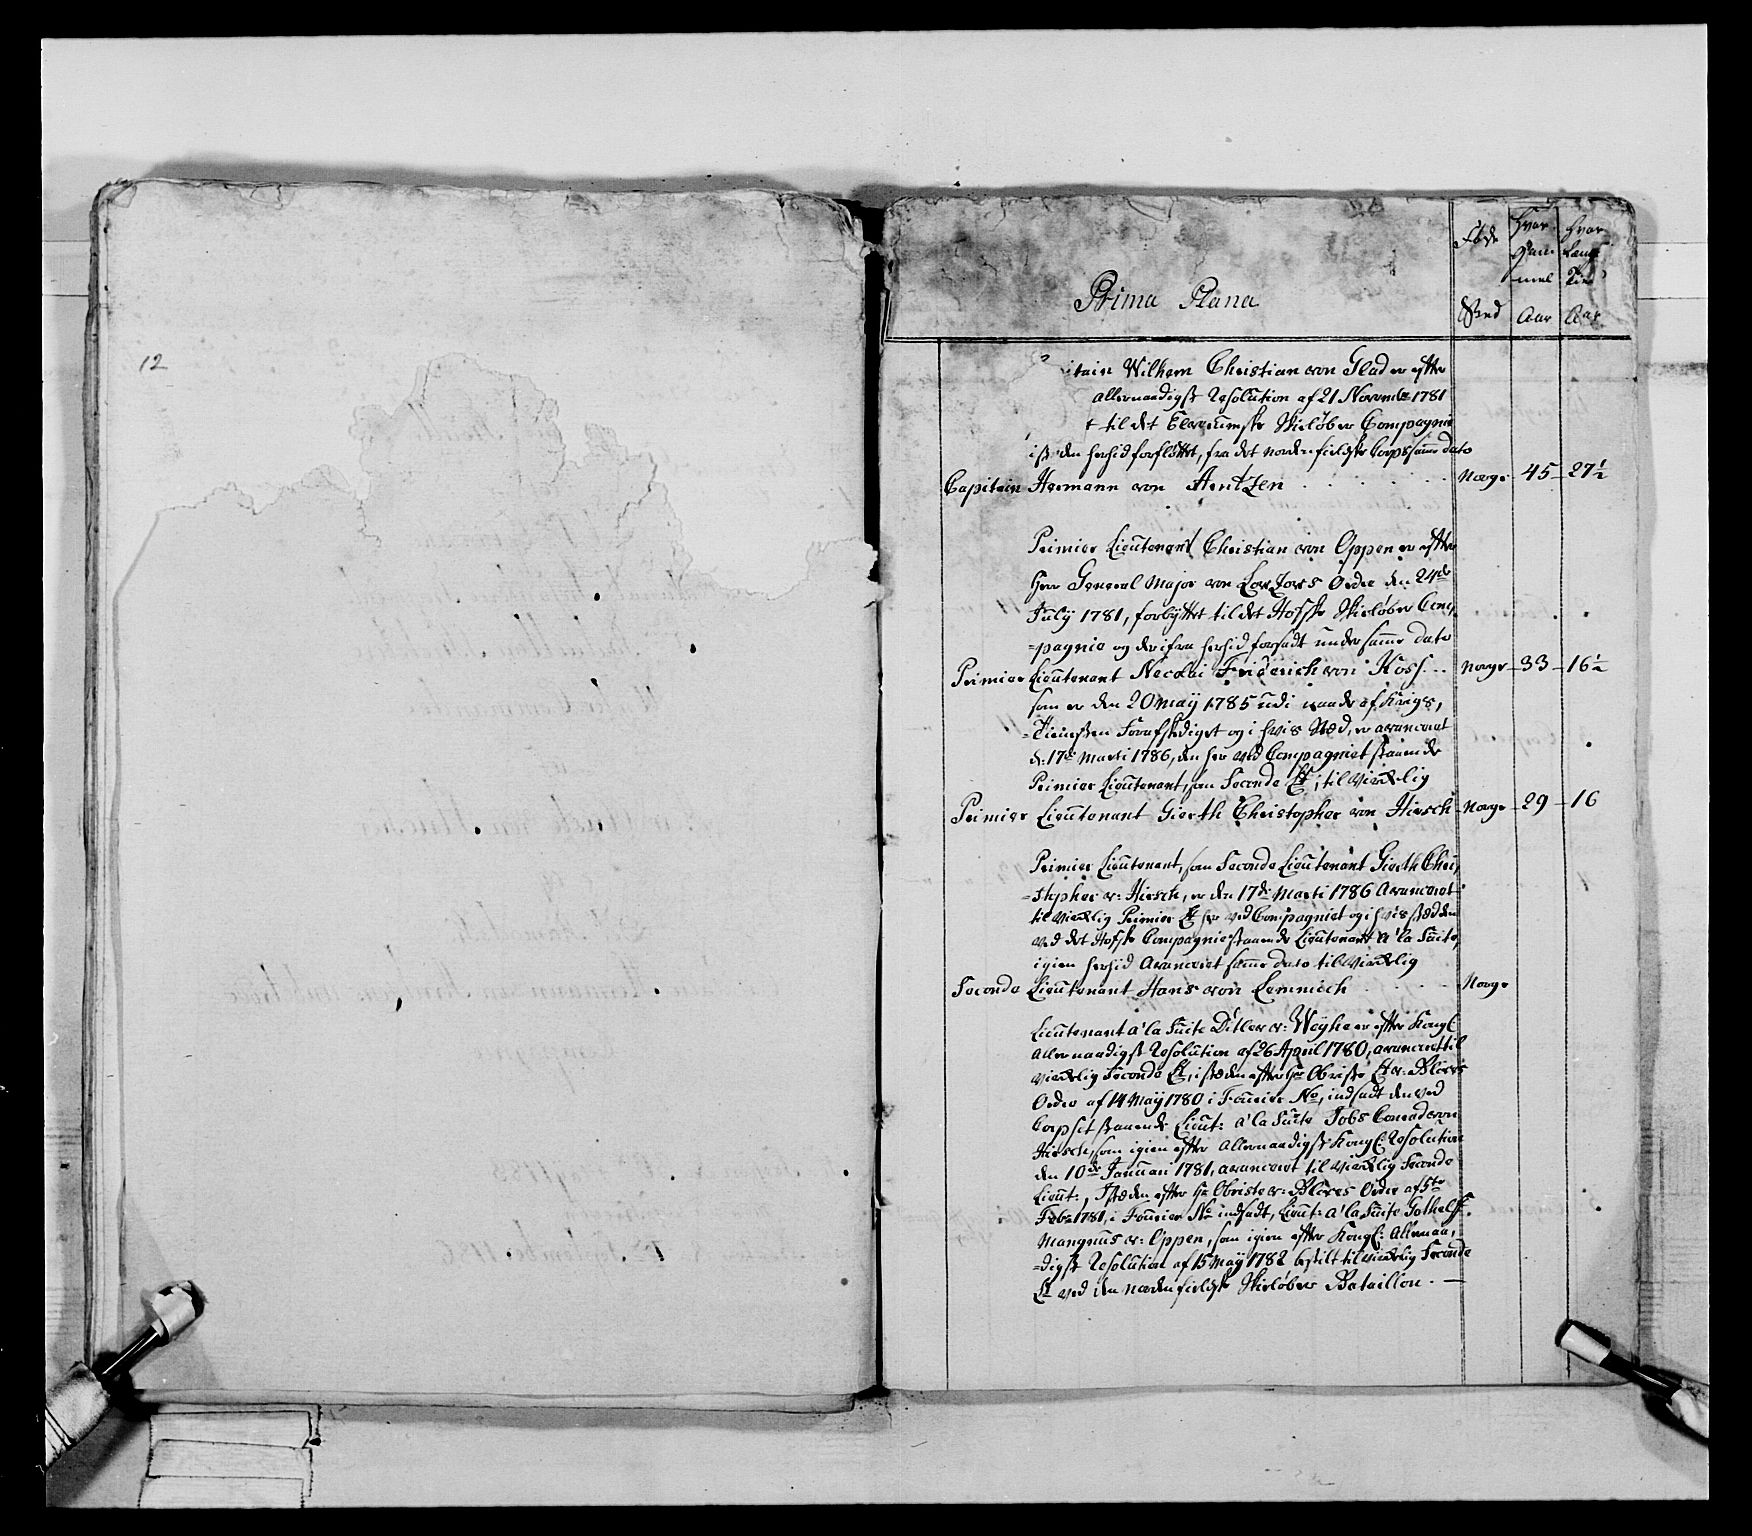 12
Prima Plana
Føde
Stæd
Hvor
Gam
mel
Aar
Hvor
Lang
Tiid
Aar
itain Wilhem Christian von Glad er efter
allernaadigst Resolution af 21 Novembr 1781
til det Elverumske Skieløber Compagnie
den herhid forfløttet, fra det nordenfieldske Corps samme dato
Capitain Hermann von Arntzen Norge 45 27½
Primier Lieutenant Christian von Oppen er efter
Herr General Major von Ordre den 24de
July 1781, forbyttet til det Hofske Skieløber Com,
=pagnie og derifra herhid forsadt under samme dato
Primier Lieutenant Necolai Friderich von Koss Norge 33 16½
som er den 20 may 1785 udi naade af Krigs,
Tienesten Forafskediget og i hvis Stæd, er avanceret
d: 17de Marti 1786, den her ved Compagniet staaende
Primier Lieutenant, som Seconde Lt, til virkelig
Primier Lieutenant Gierth Christopher von Hirsch Norge 29 16
Primier Lieutenant, som Seconde Lieutenant Gierth Chri,
=stopher v: Hirsch, er den 17de Marti 1786 Avanceret
til virkelig Primier Lt her ved Compagniet og i hvis stæd den
ved det Hofske Compagnie staaende Lieutenant a'la Suite,
igien herhid Avanceret samme dato til virkelig
Seconde Lieutenant Hans von Lemmich Norge
Lieutenant a'la Suite Ditlev v: Weyhe er efter Kongl:
Allernaadigst Resolution af 26 April 1780, avanceret til
virkelig Seconde Lt, i stæden efter Hr Obriste Lt v: Blixes
Ordre af 14 May 1780 i Nr, indsadt den ved
Corpset staaende Lieut: a'la Suite Jobs Conrad von
Hirsch, som igien efter Allernaadigst Kongl: Resolution
den 10de Januari 1781, avanceret til virkelig Seconde
Lieut:, I stæden efter Hr Obriste v: Blixes Ordre af 5te
Febr 1781, i Nr indsadt, Lieut: a'la Suite Gothelf F.
Mangnus v: Oppen, som igien efter Kongl: Allernaa,
=digst Resolution af 15 May 1782 bestilt til virkelig Seconde
Lt ved den nordenfieldske Skieløber Bataillon.